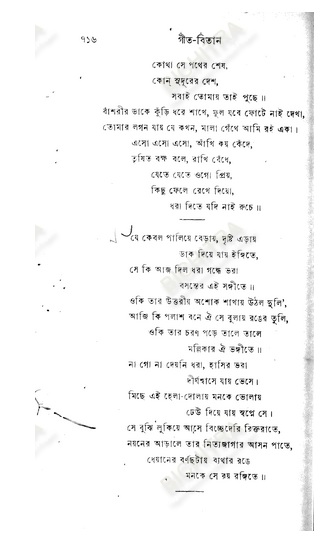 ৭১৬ গীত-বিতান
কোথা সে পথের শেষ,
কোন্ সুদূরের দেশ,
সবাই তোমায় তাই পুছে॥
বাঁশরীর ডাকে কুঁড়ি ধরে শাখে, ফুল যবে ফোটে নাই দেখা,
তোমার লগন যায় যে কখন, মালা গেঁথে আমি রই একা।
এসো এসো এসো, আঁখি কয় কেঁদে,
তৃষিত বক্ষ বলে, রাখি বেঁধে,
যেতে যেতে ওগো প্রিয়,
কিছু ফেলে রেখে দিয়ো,
ধরা দিতে যদি নাই রুচে॥
যে কেবল পালিয়ে বেড়ায়, দৃষ্টি এড়ায়
ডাক দিয়ে যায় ইঙ্গিতে,
সে কি আজ দিল ধরা গন্ধে ভরা
বসন্তের এই সঙ্গীতে॥
ওকি তার উত্তরীয় অশোক শাখায় উঠল দুলি',
আজি কি পলাশ বনে ঐ সে বুলায় রঙের তুলি,
ওকি তার চরণ পড়ে তালে তালে
মল্লিকার ঐ ভঙ্গীতে॥
না গো না দেয়নি ধরা, হাসির ভরা
দীর্ঘশ্বাসে যায় ভেসে।
মিছে এই হেলা-দোলায় মনকে ভোলায়
ঢেউ দিয়ে যায় স্বপ্নে সে।
সে বুঝি লুকিয়ে আসে বিচ্ছেদেরি রিক্তরাতে,
নয়নের আড়ালে তার নিত্যজাগার আসন পাতে,
ধেয়ানের বর্ণছটায় ব্যথার রঙে
মনকে সে রয় রঙ্গিতে॥